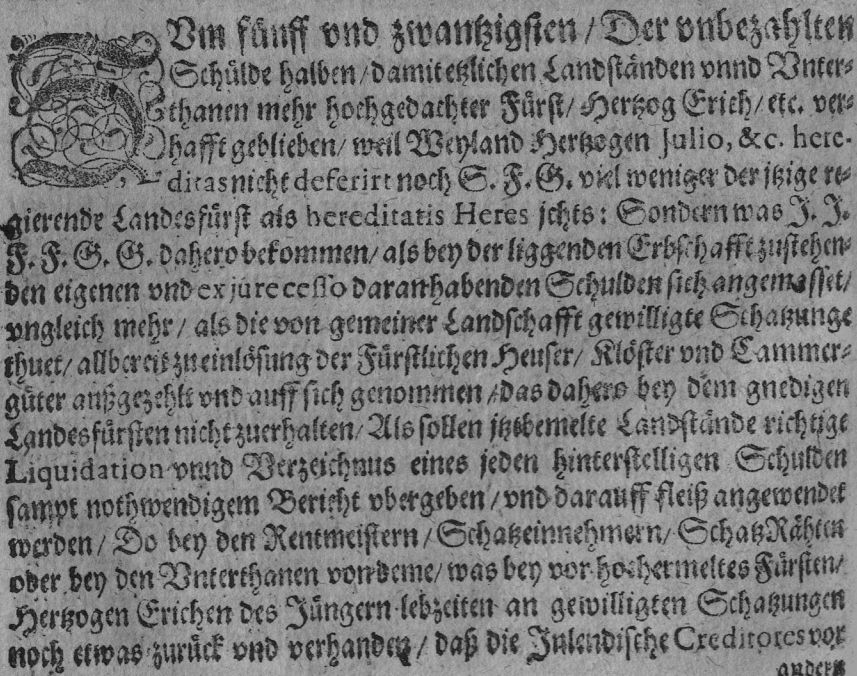 ZVm fünff vnd zwantzigsten / Der vnbezahlten
Schülde halben / damit etzlichen Landständen vnnd Vnter-
thanen mehr hochgedachter Fürst / Hertzog Erich / etc. ver-
hafft geblieben / weil Weyland Hertzogen Julio, &c. here-
ditas nicht deferirt noch S. F. G. viel weniger der itzige re-
gierende Landesfürst als hereditatis Heres ichts: Sondern was J. J.
F. F. G. G. dahero bekommen / als bey der liggenden Erbschafft zustehen-
den eigenen vnd ex jure cesso daran habenden Schulden sich angemasset /
vngleich mehr / als die von gemeiner Landschafft gewilligte Schatzunge
thuet / allbereit zu einlösung der Fürstlichen Heuser / Klöster vnd Cammer-
güter außgezehlt vnd auff sich genommen / das dahero bey dem gnedigen
Landesfürsten nicht zuerhalten / Als sollen itztbemelte Landstände richtige
Liquidation vnnd Verzeichnus eines jeden hinterstelligen Schulden
sampt nothwendigem Bericht vbergeben / vnd darauff fleiß angewendet
werden / Do bey den Rentmeistern / Schatzeinnehmern / Schatz Rähten
oder bey den Vnterthanen von deme / was bey vor hochermeltes Fürsten /
Hertzogen Erichen des Jüngern lebzeiten an gewilligten Schatzungen
noch etwas zurück vnd verhanden / daß die Inlendische Creditores vor
andern